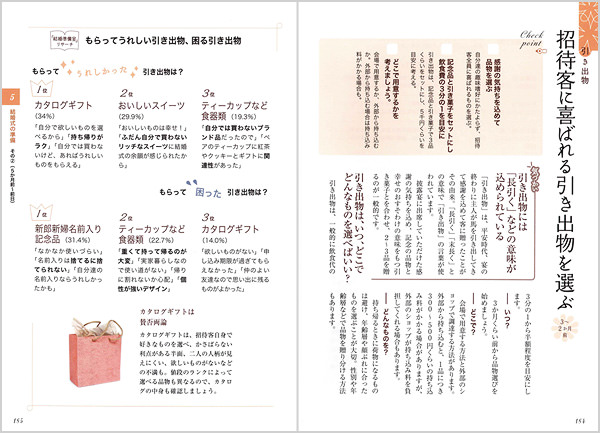 引き出物
招待客に喜ばれる引き出物を選ぶ
3〜
2カ月
前
Check
point
感謝の気持ちを込めて
品物を選ぶ
自分達の趣味嗜好にかたよらず、招待
客全員に喜ばれるものを選ぶ。
記念品と引き菓子をセットにし
飲食費の3分の1を目安に
引き出物は、記念品と引き菓子で3品
くらいをセットにし、5千円くらいを
目安に。
どこで用意するかを
考えましょう。
会場で用意するか、外部から持ち込む
か。外部から持ち込む場合は持ち込み
料がかかる場合も。
引き出物には
「長引く」などの意味が
込められている
「引き出物」は、平安時代、宴の
終わりに主人が馬を引き出してき
て感謝を込めて客に贈ったことが
その由来。「長引く」「末長く」と
の意味で「引き出物」の言葉が使
われています。
披露宴に出席していただいた感
謝の気持ちを込め、記念の品物と
幸せのおすそわけの意味をもつ引
き菓子とを合わせ、2〜3品を贈
るのが一般的です。
引き出物は、いつ、どこで
どんなものを選べばいい?
引き出物は、一般的に飲食代の
3分の1から半額程度を目安にし
ます。
いつ?
3か月くらい前から品物選びを
始めましょう。
どこで?
会場で用意する方法と外部のシ
ョップで調達する方法があります。
外部から持ち込むと、1品につき
300〜500円くらいの持ち込
み料がかかる場合がありますが、
外部のショップが持ち込み料を負
担してくれる場合もあります。
どんなものを?
持ち帰るときに荷物になるもの
は避け、年齢層や顔ぶれに合った
ものを選ぶことが大切。性別や年
齢層などで品物を贈り分ける方法
もあります。
184
「結婚準備室」
リサーチ
もらってうれしい引き出物、困る引き出物
もらって うれしかった 引き出物は?
1位
カタログギフト
(34%)
「自分で欲しいものを選
べるから」「持ち帰りが
ラク」「自分では買わな
いけど、あればうれしい
ものをもらえる」
2位
おいしいスイーツ
(29.9%)
「おいしいものは幸せ!」
「ふだん自分で買わない
リッチなスイーツに結婚
式の余韻が感じられたか
ら」
3位
ティーカップなど
食器類(19.3%)
「自分では買わないブラ
ンド品だったので」「ペ
アのティーカップに紅茶
やクッキーとギフトに関
連性があった」
もらって 困った 引き出物は?
1位
新郎新婦名前入り
記念品(31.4%)
「なかなか使いづらい」
「名前入りは捨てるに捨
てられない」「自分達の
名前入りならうれしかっ
たかも」
2位
ティーカップなど
食器類(22.7%)
「重くて持って帰るのが
大変」「実家暮らしなの
で使い道がない」「帰り
に割れないか心配」「個
性が強いデザイン」
3位
カタログ
(14.0%)
「欲しいものがない」「申
し込み期限が過ぎてもら
えなかった」「仲のよい
友達なので思い出に残る
ものがよかった」
カタログギフトは
賛否両論
カタログギフトは、招待客自身で
好きなものを選べ、かさばらない
利点がある半面、二人の人柄が見
えにくい、欲しいものがないなど
の不満も。値段のランクによって
選べる品物も異なるので、カタロ
グの中身も確認しましょう。
5
結婚式の準備
185